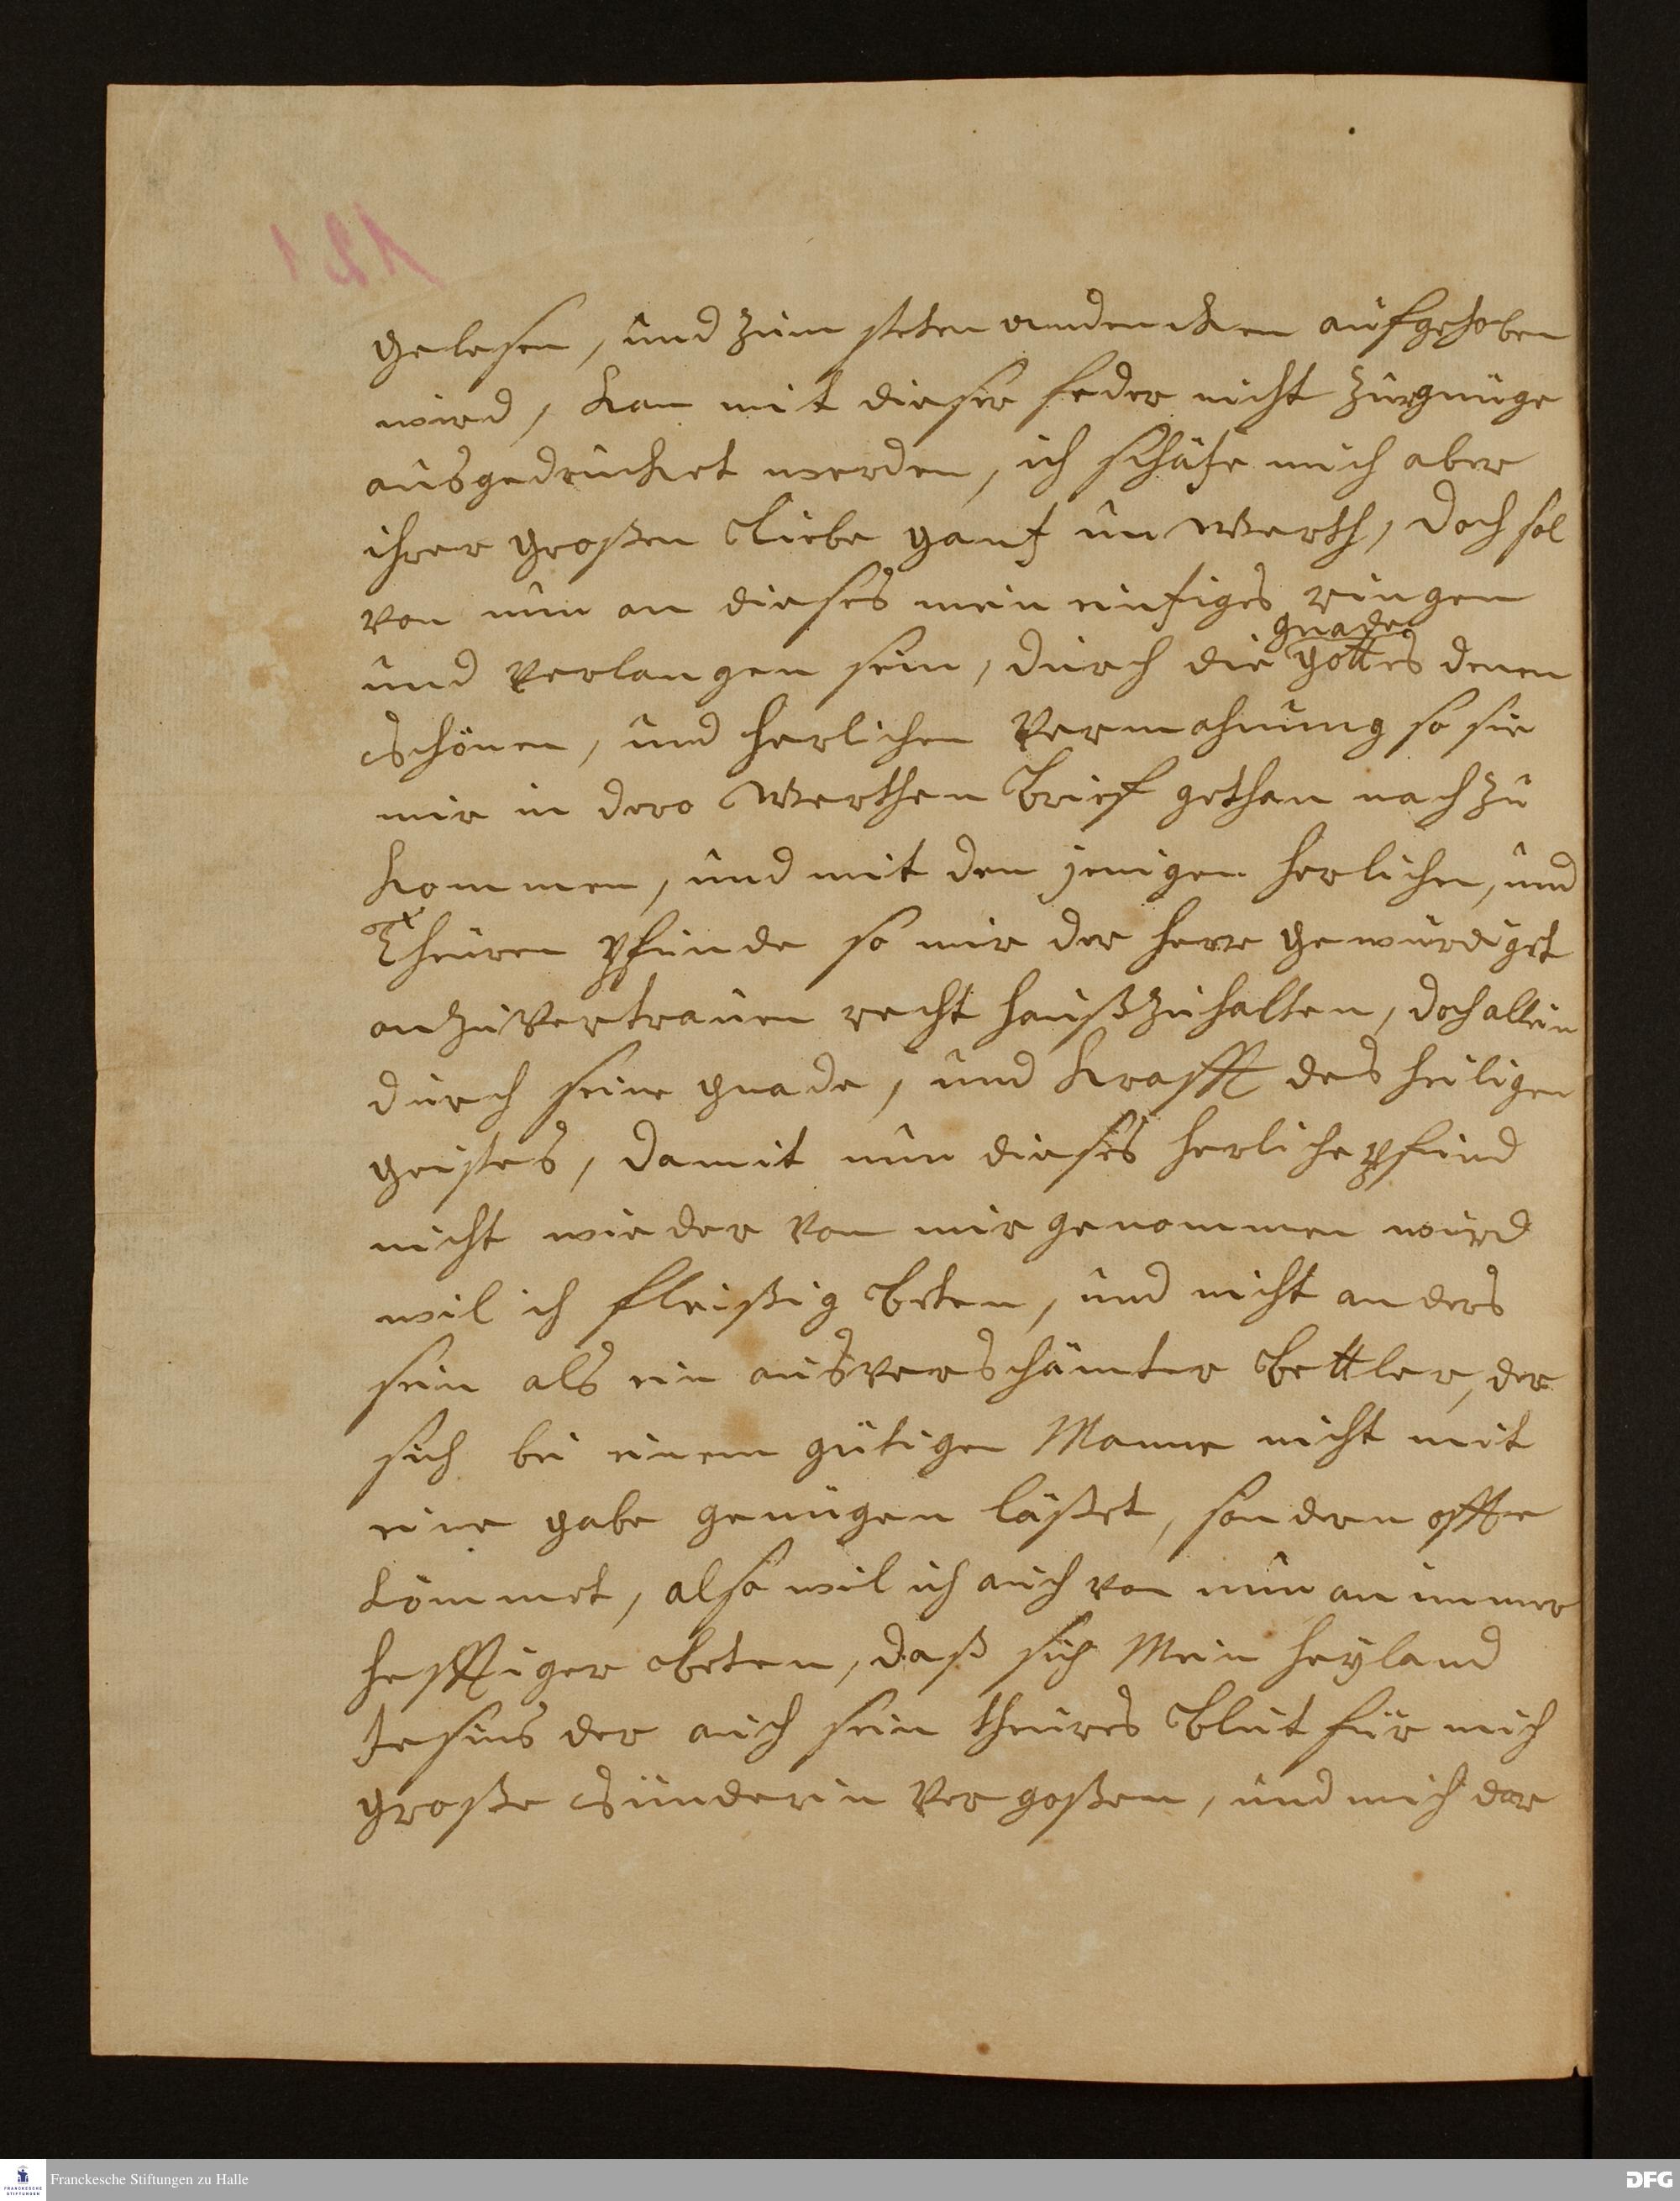 gelesen, und zum steten andencken aufgehoben
wird, kan mit dieser feder nicht zurgnüge
ausgedrucket werden, ich schätze mich aber
ihrer großen Liebe gantz un werth, doch sol
von nun an dieses mein eintziges ringen
und verlangen sein, durch die gnade gottes denen
schönen, und herlichen Vermahnung so sie
mir in dero werthen Brief gethan nach zu
kommen, und mit den jenigen herlichen, und
Theuren pfunde so mir der herr gewürdiget
anzuvertrauen recht haußzuhalten, doch allein
durch seine gnade, und krafft des heiligen
geistes, damit nun dieses herliche pfund
nicht wieder von mir genommen wird
wil ich fleißig beten, und nicht anders
sein als ein ausverschämter bettler, der
sich bei einem gütigen Manne nicht mit
eine gabe genügen läßet, sondern offte
kömmet, also wil ich auch von nun an immer
hefftiger beten, daß sich Mein heyland
Jesus der auch sein theures Blut für mich
große sünderin vergoßen, und mich dar
Franckesche Stiftungen zu Halle
DFG